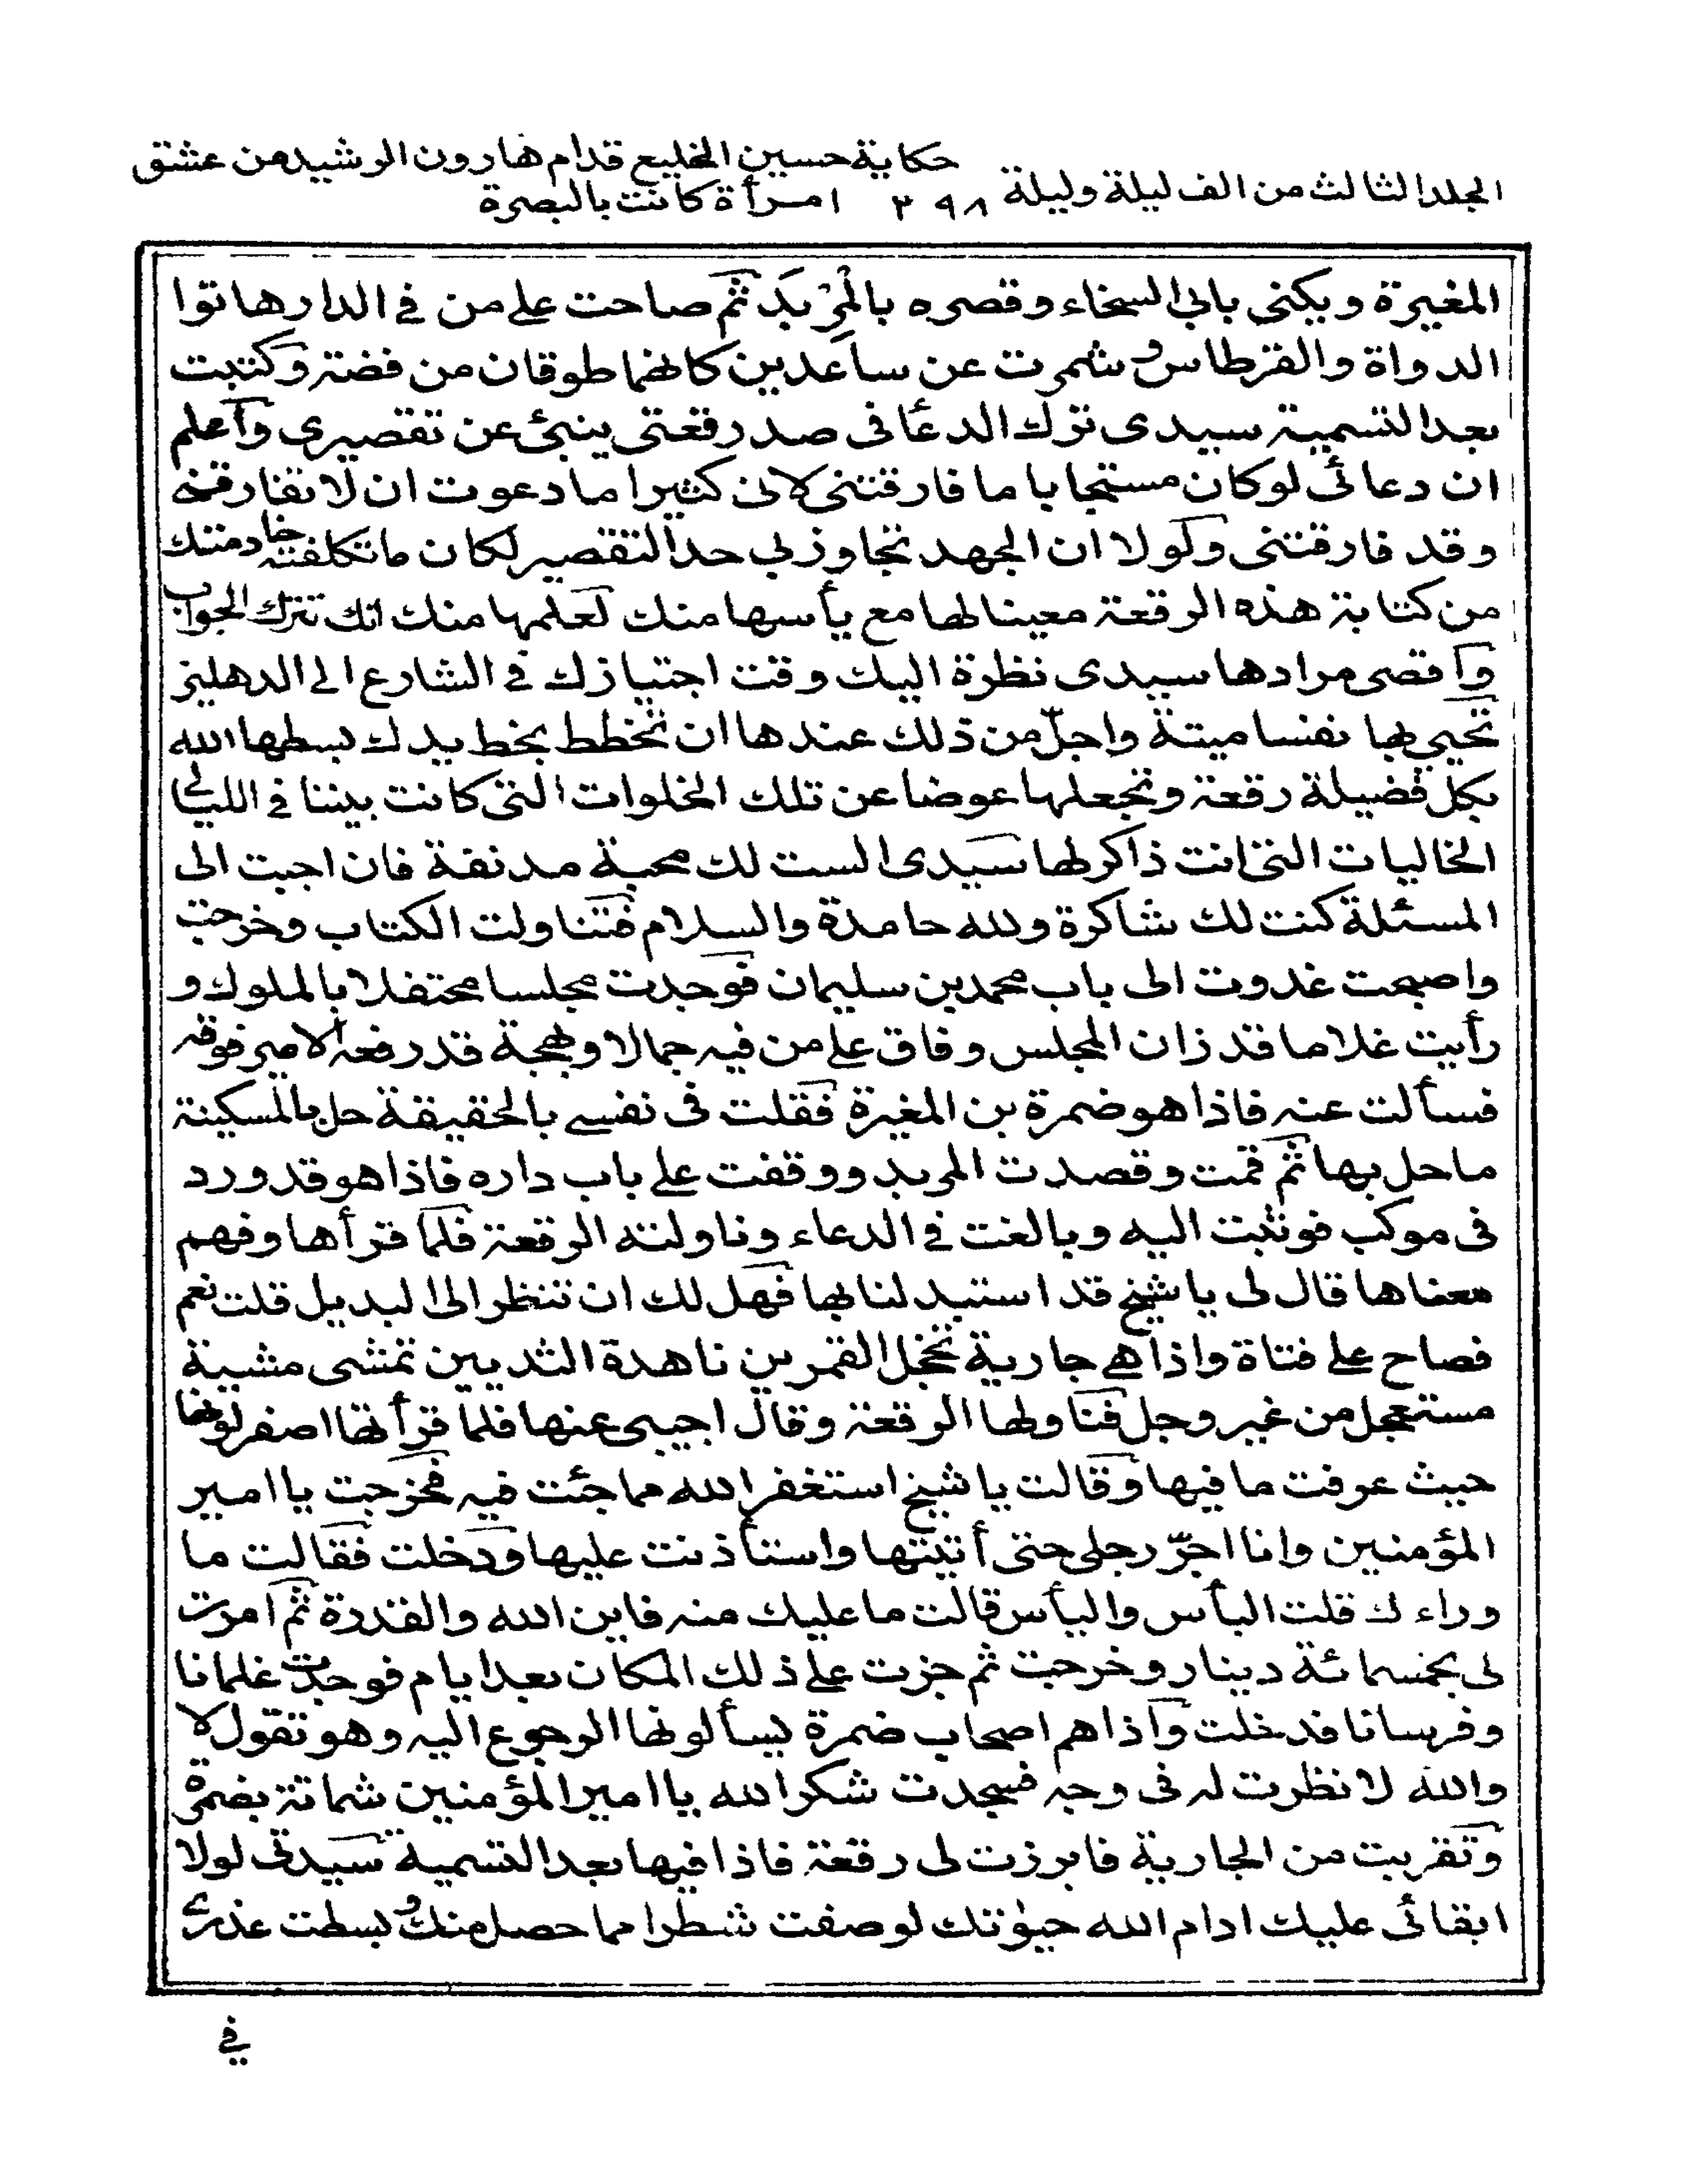 حكاية حسين الخليع قدام هارون الرشيد من عشق
الجلد الثالث من الف ليلة وليلة ٣٩٨ امرأة كانت بالبصرة
المغيرة ويكنى بابي السخاء وقصره بالمِرْبَد ثم صاحت على من في الدار هاتوا
الدواة والقرطاس و شمرت عن ساعدين كانهما طوقان من فضة وكتبت
بعد التسمية سيدى ترك الدعا فى صدر رقعتى ينبئ عن تقصيرى وآعلم
ان دعائى لو كان مستجابا ما فارقتنى لانى كثيرا ما دعوت ان لا تفارقنى
وقد فارقتنى ولولا ان الجهد تجاوز بي حد التقصير لكان ما تكلفته خادمتك
من كتابة هذه الرقعة معينا لها مع يأسها منك لعلمها منك انك تترك الجواب
وآقصى مرادها سيدى نظرة اليك وقت اجتيازك في الشارع الى الدهليز
تحيي بها نفسا ميتة واجلّ من ذلك عندها ان تخطط بخط يدك بسطها الله
بكل فضيلة رقعة وتجعلها عوضا عن تلك الخلوات التى كانت بيننا في الليالي
الخاليات التى انت ذاكر لها سيدى الست لك محبة مدنفة فان اجبت الى
المسئلة كنت لك شاكرة ولله حامدة والسلام فتناولت الكتاب وخرجت
واصبحت غدوت الى باب محمد بن سليمان فوجدت مجلسا محتفلا بالملوك و
رأيت غلاما قد زان المجلس وفاق على من فيه جمالا وبهجة قد رفعه الامير فوقه
فسألت عنه فاذا هو ضمرة بن المغيرة فقلت فى نفسى بالحقيقة حل بالمسكينة
ما حل بها ثم قمت وقصدت المربد ووقفت على باب داره فاذا هو قد ورد
فى موكب فوثبت اليه وبالغت في الدعاء وناولته الرقعة فلما قرأها وفهم
معناها قال لى يا شيخ قد استبدلنا بها فهل لك ان تنظر الى البديل قلت نعم
فصاح على فتاة واذا هي جارية تخجل القمرين ناهدة الثديين تمشى مشية
مستعجل من غير وجل فناولها الرقعة وقال اجيبى عنها فلما قرأتها اصفر لونها
حيث عرفت ما فيها وقالت يا شيخ استغفر الله مما جئت فيه فخرجت يا امير
المؤمنين وانا اجرّ رجلى حتى أتيتها واستأذنت عليها ودخلت فقالت ما
وراءك قلت البأس واليأس قالت ما عليك منه فاين الله والقدرة ثم امرت
لى بخمسمائة دينار وخرجت ثم جزت على ذلك المكان بعد ايام فوجدت غلمانا
وفرسانا فدخلت وآذا هم اصحاب ضمرة يسألونها الرجوع اليه وهو تقول لا
والله لا نظرت له فى وجه فسجدت شكرا لله يا امير المؤمنين شماتة بضمرة
وتقربت من الجارية فابرزت لى رقعة فاذا فيها بعد التسمية سيدتى لولا
ابقائى عليك ادام الله حيٰوتك لوصفت شطرا مما حصل منك و بسطت عذرى
في